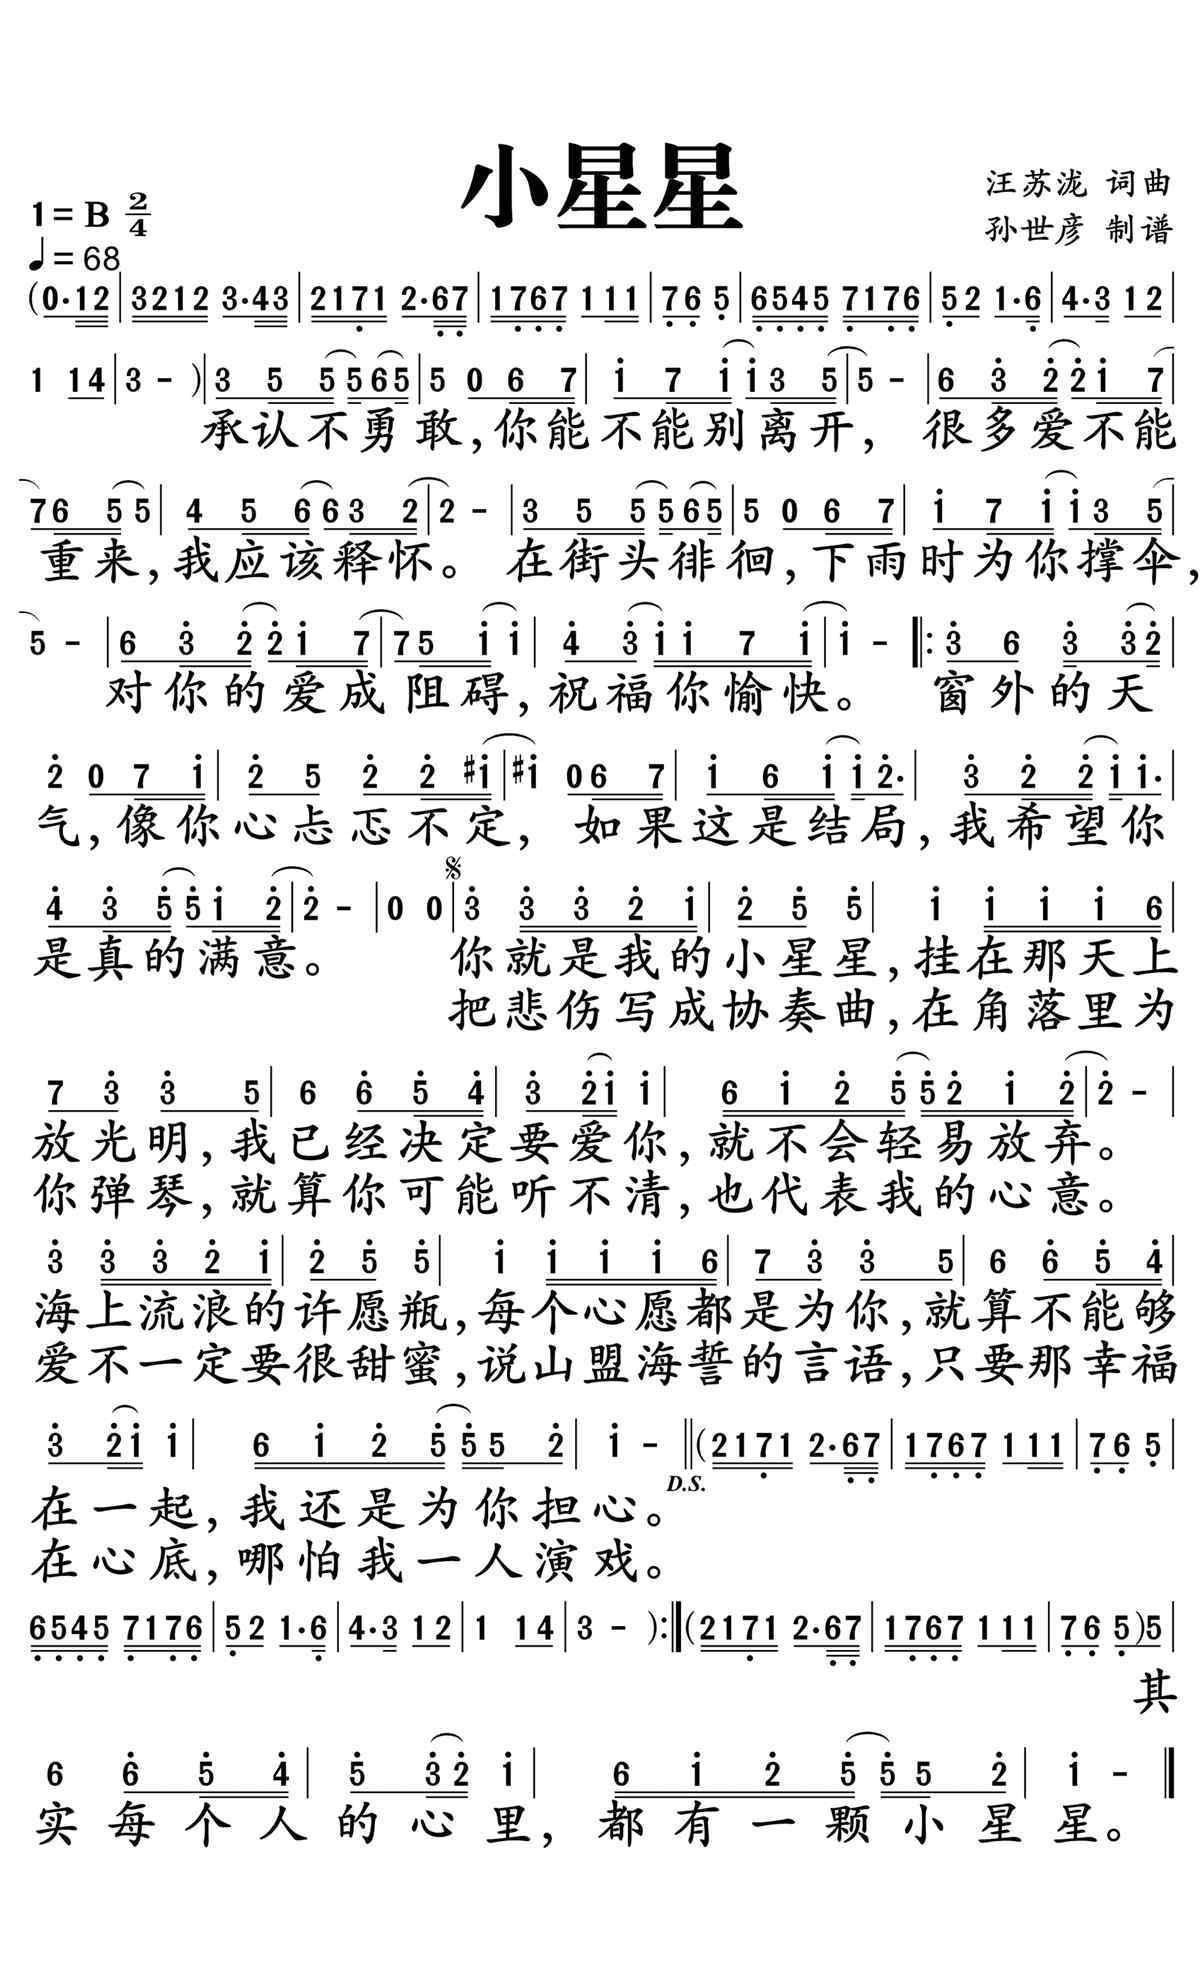 小星星
汪苏泷 词曲
孙世彦 制谱
1=B 2/4
♩=68
(0·12|3212 3·43|2171 2·67|1767 111|76 5|6545 7176|52 1·6|4·3 12|
1 14|3 -)|3 5 5 565|5 0 6 7|i 7 i i3 5|5 -|6 3 2 2i 7|
承认不勇敢,你能不能别离开, 很多爱不能
76 5 5|4 5 6 63 2|2 -|3 5 5 565|5 0 6 7|i 7 i i3 5|
重来,我应该释怀。 在街头徘徊,下雨时为你撑伞,
5 -|6 3 2 2i 7|75 i i|4 3 i i 7 i|i -|:3 6 3 32|
对你的爱成阻碍,祝福你愉快。 窗外的天
2 0 7 i|2 5 2 2 #i|#i 06 7|i 6 i i 2·|3 2 2 i i·|
气,像你心忐忑不定, 如果这是结局,我希望你
4 3 5 5i 2|2 -|0 0|3 3 3 2 i|2 5 5|i i i i 6|
是真的满意。 你就是我的小星星,挂在那天上
把悲伤写成协奏曲,在角落里为
7 3 3 5|6 6 5 4|3 2i i|6 i 2 5 52 i 2|2 -|
放光明,我已经决定要爱你,就不会轻易放弃。
你弹琴,就算你可能听不清,也代表我的心意。
3 3 3 2 i|2 5 5|i i i i 6|7 3 3 5|6 6 5 4|
海上流浪的许愿瓶,每个心愿都是为你,就算不能够
爱不一定要很甜蜜,说山盟海誓的言语,只要那幸福
3 2i i|6 i 2 5 55 2|i -||(2171 2·67|1767 111|76 5|
D.S.
在一起,我还是为你担心。
在心底,哪怕我一人演戏。
6545 7176|52 1·6|4·3 12|1 14|3 -):|(2171 2·67|1767 111|76 5)5|
其
6 6 5 4|5 32 i|6 i 2 5 55 2|i -|
实每个人的心里,都有一颗小星星。